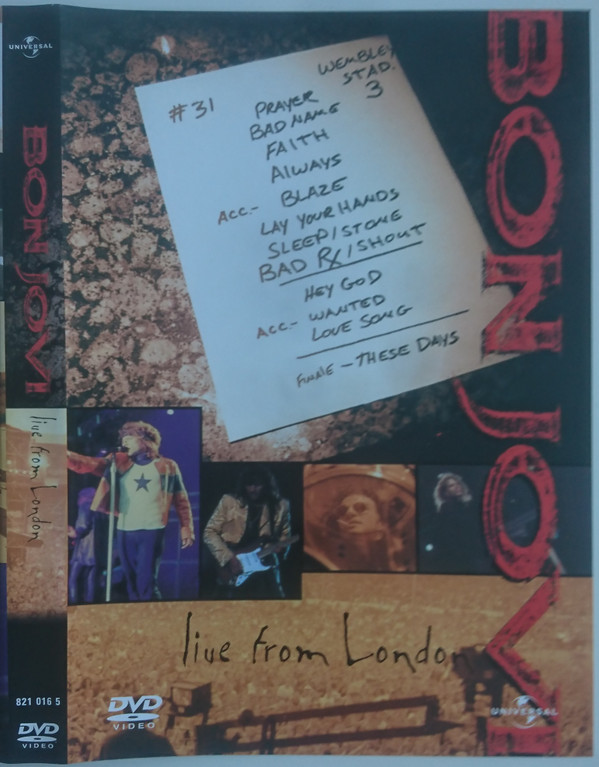 UNIVERSAL
BON JOVI
live from London
821 016 5
DVD
VIDEO
WEMBLEY
STAD.
3
#31
PRAYER
BAD NAME
FAITH
ALWAYS
ACC.- BLAZE
LAY YOUR HANDS
SLEEP/STONE
BAD RX/SHOUT
HEY GOD
ACC.- WANTED
LOVE SONG
FINALE - THESE DAYS
BON JOVI
live from London
DVD
VIDEO
UNIVERSAL